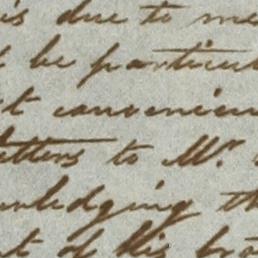 is due to me
t be particul
t convenien
etters to Mr.
owledging th
t of his bro